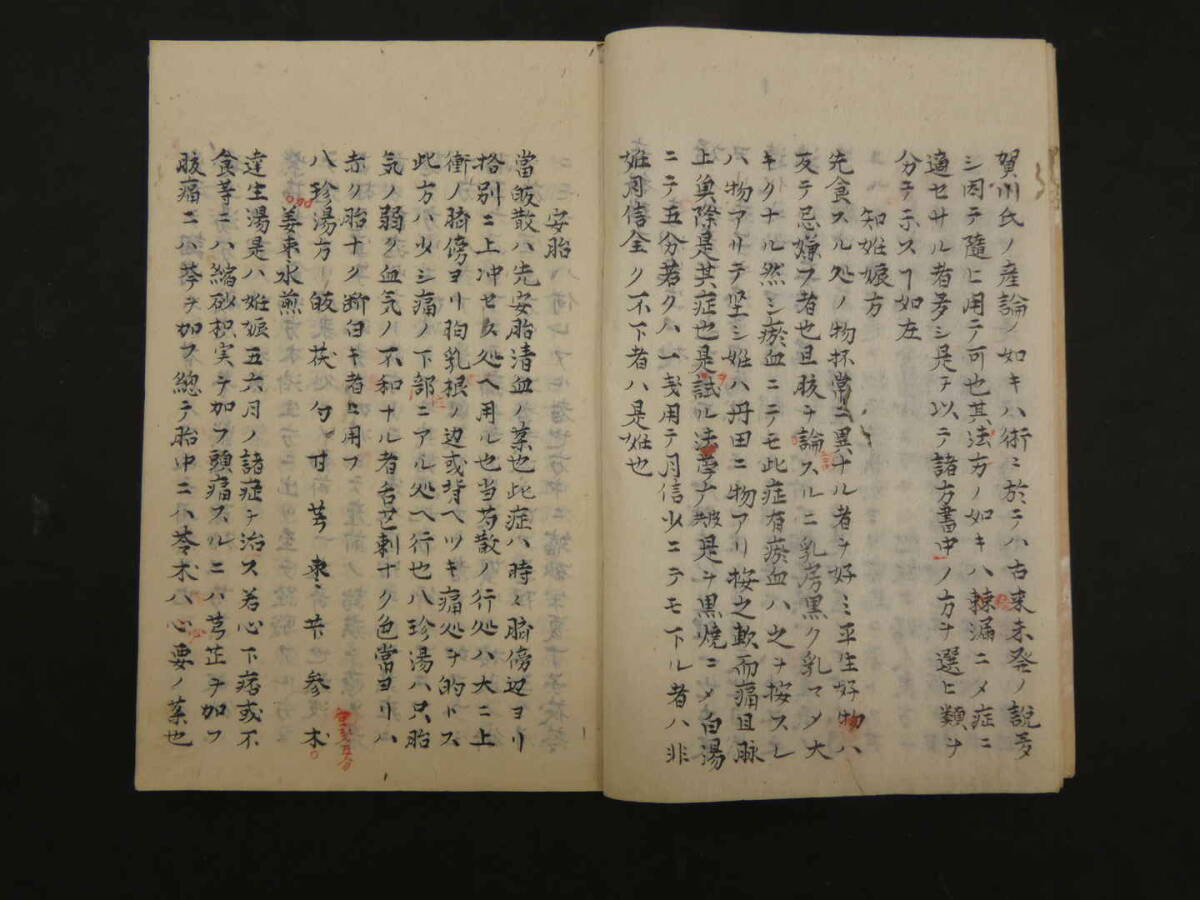 賀川氏ノ産論ノ如キハ術ニ於テハ古来未発ノ説多
シ因テ随ヒ用テ可也其法方ノ如キハ疎漏ニメ症ニ
適セサル者多シ是ヲ以テ諸方書中ノ方ヲ選ヒ類ヲ
分テ示スヿ如左
知妊娠方
先食スル処ノ物杯常ニ異ナル者ヲ好ミ平生好物ハ
反テ忌嫌フ者也且腹ヲ論スルニ乳房黒ク乳マメ大
キクナル然シ瘀血ニテモ此症有瘀血ハ之ヲ按スレ
ハ物アリテ坚シ妊ハ丹田ニ物アリ按之軟而痛且脉
上 除是其症也是試ル法 皮是ヲ黒焼ニメ白湯
ニテ五分若クハ一戔用テ月信少ニテモ下ル者ハ非
妊月信全ク不下者ハ是妊也
安胎
當皈散ハ先安胎清血ノ薬也此症ハ時々臍傍辺ヨリ
格別ニ上冲セル処ヘ用ル也当芍散ノ行処ハ大ニ上
衝ノ臍傍ヨリ胸乳根ノ辺或背ヘツキ痛処ヲ的トス
此方ハ少シ痛ノ下部ニアル処ヘ行也八珍湯ハ只胎
気ノ弱ク血気ノ不和ナル者舌芒刺ナク色當ヨリハ
赤ク胎ナク断白キ者ニ用フ
八珍湯方 皈 茯 勺 甘 芎 棗 苄 参 朮
姜棗水煎
達生湯是ハ妊娠五六月ノ諸症ヲ治ス若心下痞或不
食等ニハ縮砂枳実ヲ加フ頭痛スルニハ芎芷ヲ加フ
腹痛ニハ芩ヲ加フ總テ胎中ニハ芩朮ハ心要ノ薬也